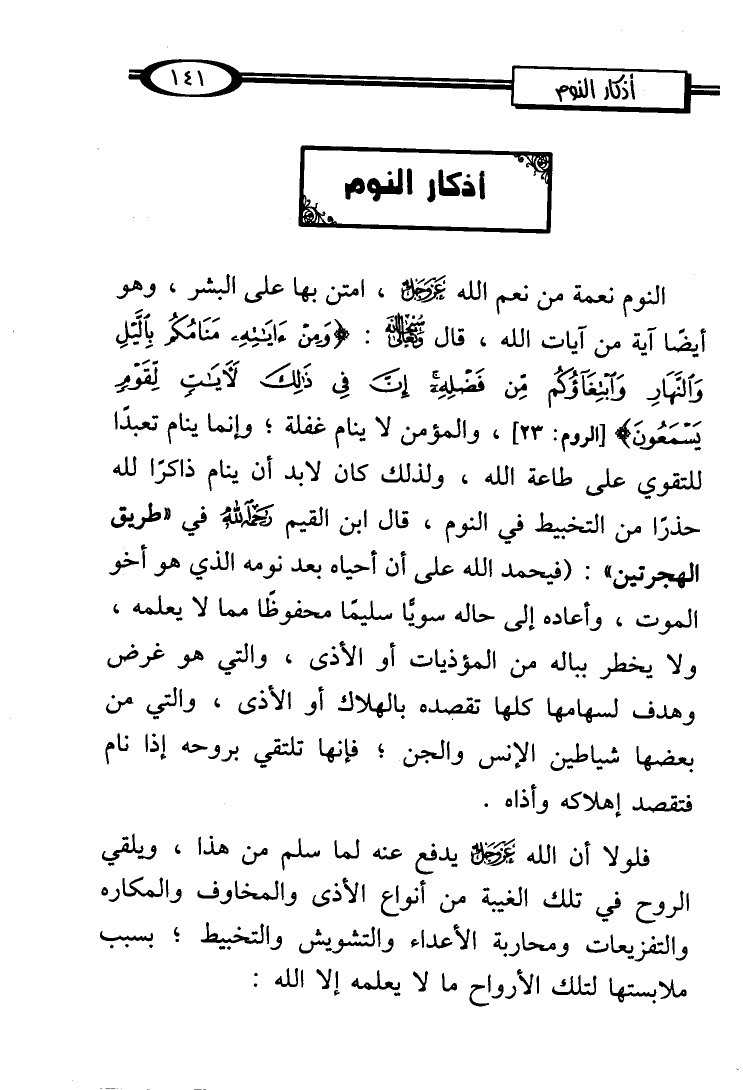 أذكار النوم
١٤١
أذكار النوم
النوم نعمة من نعم الله عَزَّوَجَلَّ ، امتن بها على البشر ، وهو
أيضًا آية من آيات الله ، قال سُبْحَانَهُ وَتَعَالَىٰ : ﴿وَمِنْ ءَايَٰتِهِۦ مَنَامُكُم بِٱلَّيْلِ
وَٱلنَّهَارِ وَٱبْتِغَآؤُكُم مِّن فَضْلِهِۦٓ ۚ إِنَّ فِى ذَٰلِكَ لَـَٔايَٰتٍ لِّقَوْمٍ
يَسْمَعُونَ﴾ [الروم: ٢٣] ، والمؤمن لا ينام غفلة ؛ وإنما ينام تعبدًا
للتقوي على طاعة الله ، ولذلك كان لابد أن ينام ذاكرًا لله
حذرًا من التخبيط في النوم ، قال ابن القيم رَحِمَهُ ٱللَّهُ في «طريق
الهجرتين» : (فيحمد الله على أن أحياه بعد نومه الذي هو أخو
الموت ، وأعاده إلى حاله سويًّا سليمًا محفوظًا مما لا يعلمه ،
ولا يخطر بباله من المؤذيات أو الأذى ، والتي هو غرض
وهدف لسهامها كلها تقصده بالهلاك أو الأذى ، والتي من
بعضها شياطين الإنس والجن ؛ فإنها تلتقي بروحه إذا نام
فتقصد إهلاكه وأذاه .
فلولا أن الله عَزَّوَجَلَّ يدفع عنه لما سلم من هذا ، ويلقي
الروح في تلك الغيبة من أنواع الأذى والمخاوف والمكاره
والتفزيعات ومحاربة الأعداء والتشويش والتخبيط ؛ بسبب
ملابستها لتلك الأرواح ما لا يعلمه إلا الله :